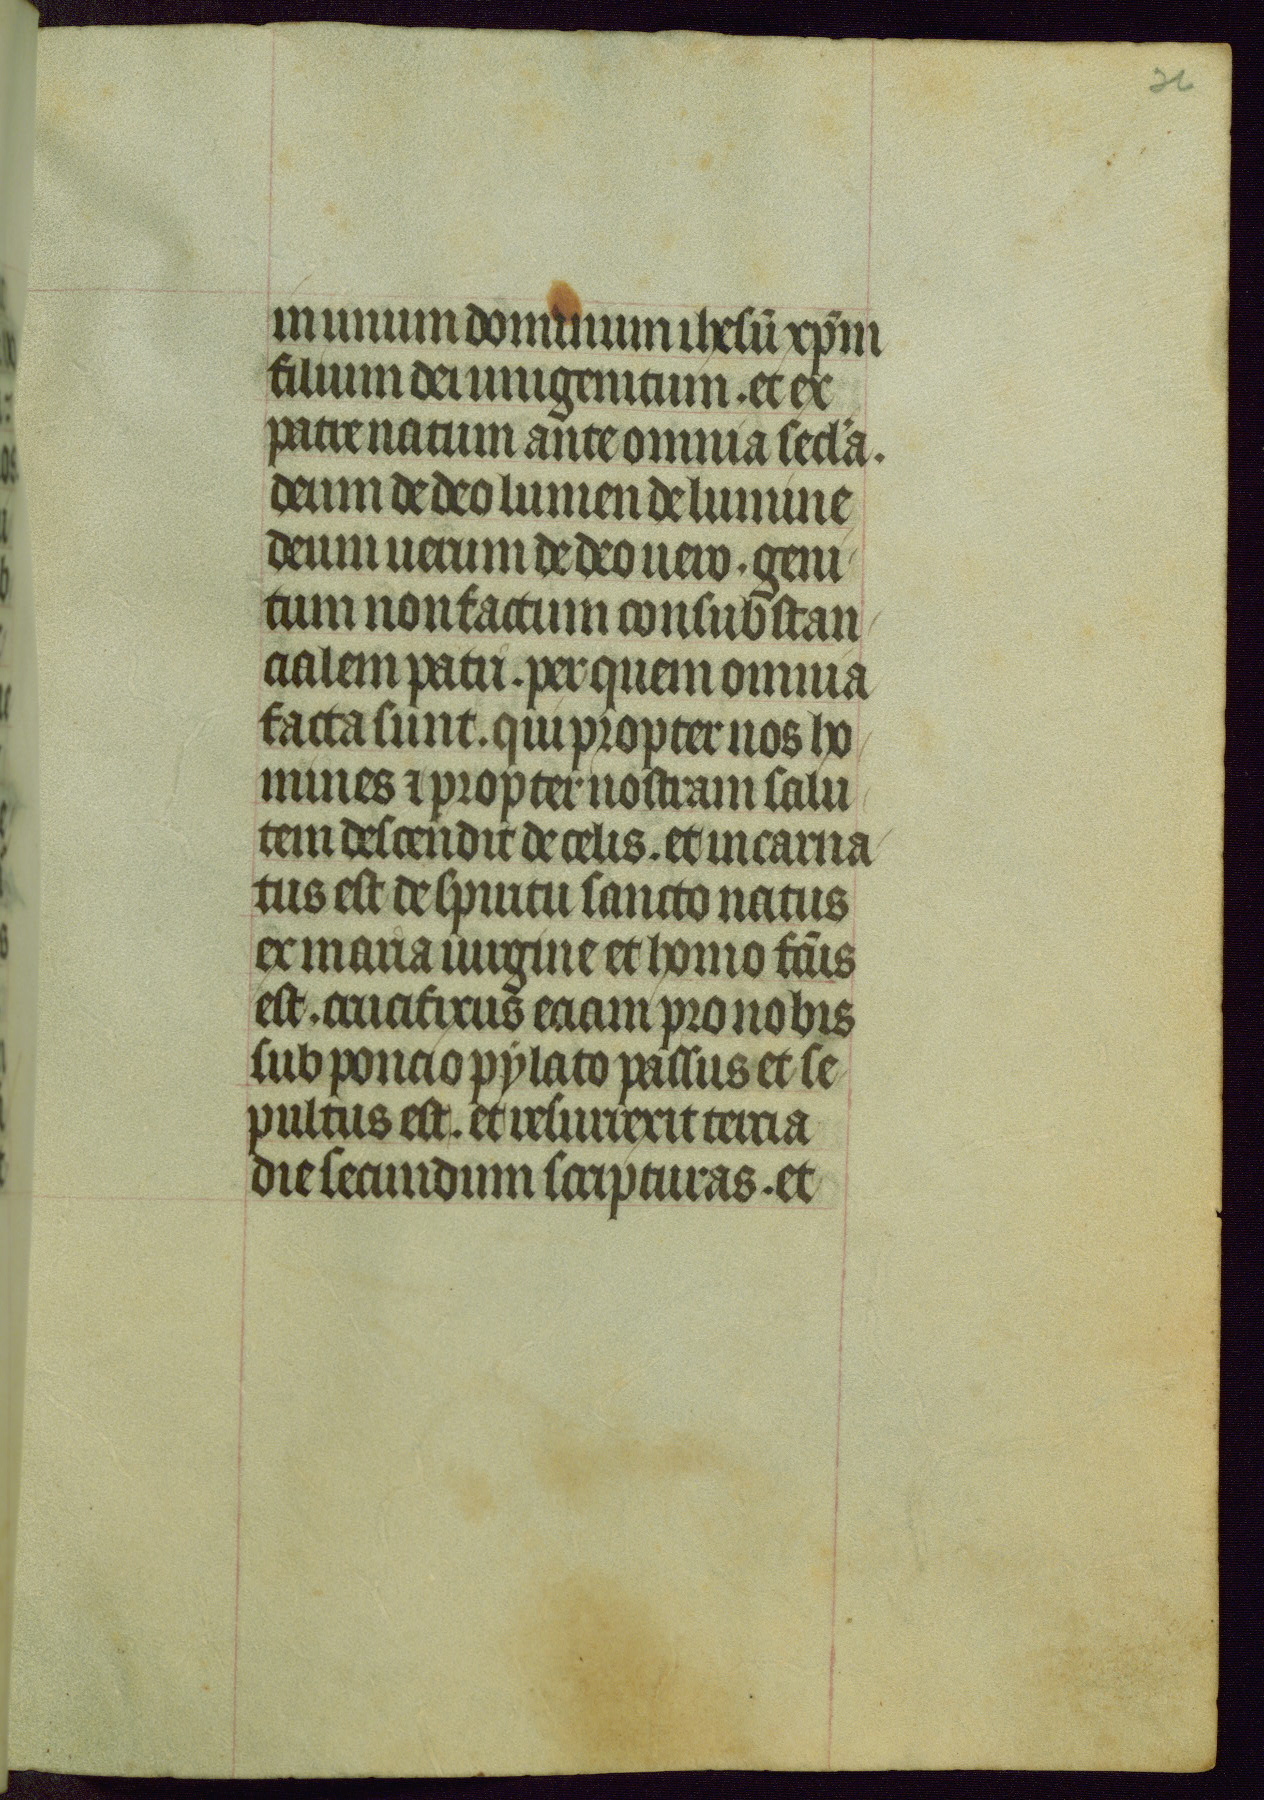 36
in unum dominum ihesū xp̄m
filium dei unigenitum . et ex
patre natum ante omnia secl'a .
deum de deo lumen de lumine
deum uerum de deo uero . geni
tum non factum consubstan
cialem patri . per quem omnia
facta sunt . qui propter nos ho
mines ⁊ propter nostram salu
tem descendit de celis . et incarna
tus est de spiritu sancto natus
ex maria uirgine et homo fc̄us
est . crucifixus eciam pro nobis
sub poncio pylato passus et se
pultus est . et resurrexit tercia
die secundum scripturas . et